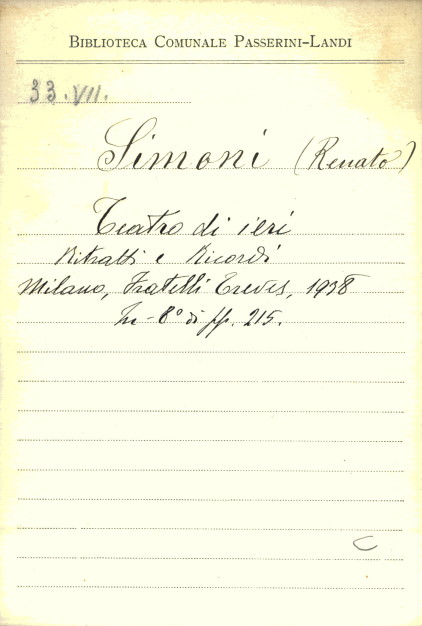 BIBLIOTECA COMUNALE PASSERINI-LANDI
33.VII.
Simoni (Renato)
Teatro di ieri
Ritratti e Ricordi
Milano, Fratelli Treves, 1938
In-8° di pp. 215.
C